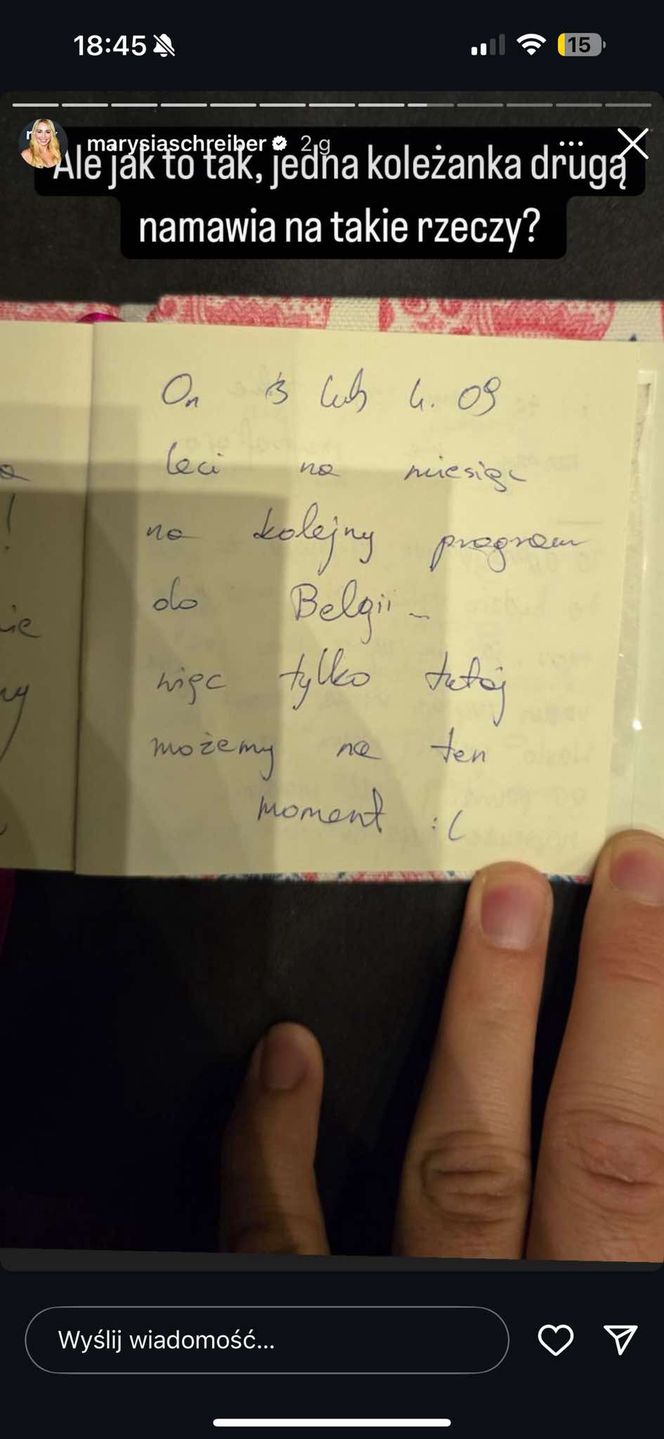 18:45
15
marysiaschreiber 2 g
Ale jak to tak, jedna koleżanka drugą
namawia na takie rzeczy?
On 3 lub 4. 09
leci na miesiąc
na kolejny program
do Belgii
więc tylko tutaj
możemy na ten
moment :(
Wyślij wiadomość...